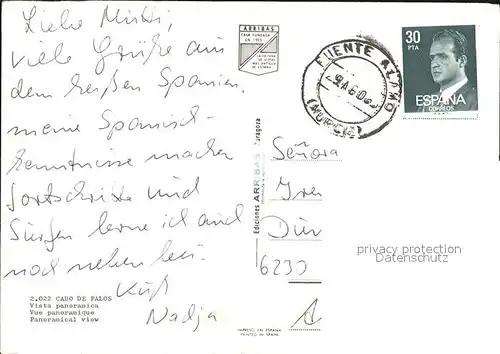 Liebe Mutti,
viele Grüße aus
dem heißen Spanien.
meine Spanisch-
kenntnisse machen
Fortschritte und
Surfen lerne ich auch
noch neben bei.
Kuß
Nadja
2.022 CABO DE PALOS
Vista panoramica
Vue panoramique
Panoramical view
ARRIBAS
CASA FUNDADA
EN 1905
Ediciones ARRIBAS Zaragoza
IMPRESO EN ESPAÑA
PRINTED IN SPAIN
FUENTE ALAMO
(MURCIA)
30
PTA
ESPAÑA
CORREOS
Señora
6230
A
privacy protection
Datenschutz